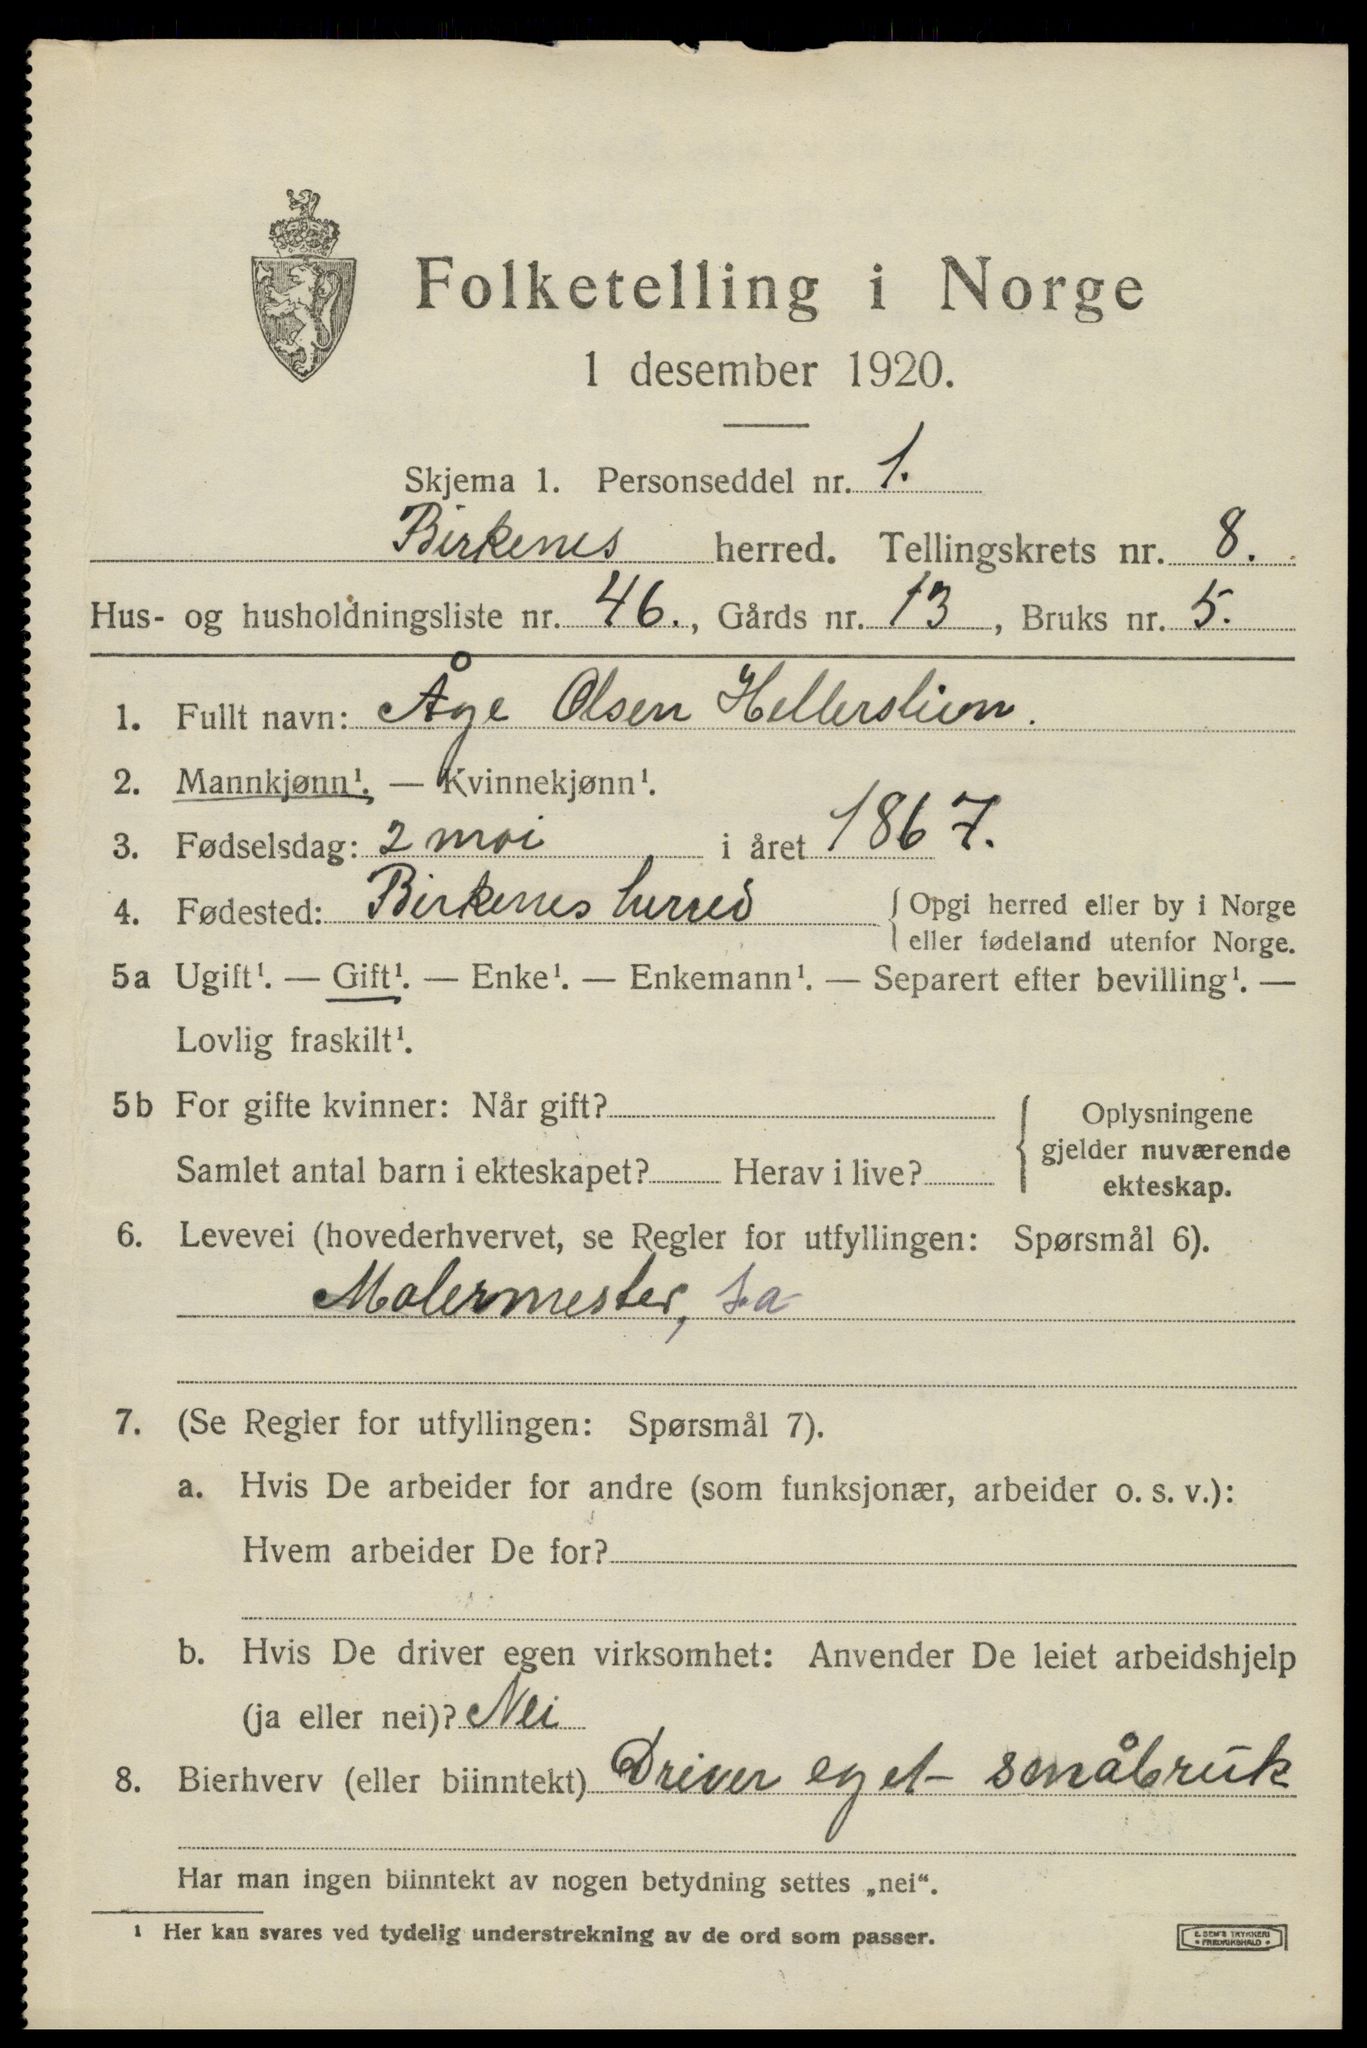 Folketelling i Norge
1 desember 1920.
Skjema 1. Personseddel nr. 1.
Birkenes herred. Tellingskrets nr. 8.
Hus- og husholdningsliste nr. 46., Gårds nr. 13, Bruks nr. 5.
1. Fullt navn: Åge Olsen Hellerslien.
2. Mannkjønn¹. — Kvinnekjønn¹.
3. Fødselsdag: 2 mai i året 1867.
4. Fødested: Birkenes herred { Opgi herred eller by i Norge
eller fødeland utenfor Norge.
5a Ugift¹. — Gift¹. — Enke¹. — Enkemann¹. — Separert efter bevilling¹. —
Lovlig fraskilt¹.
5b For gifte kvinner: Når gift?
Samlet antal barn i ekteskapet? Herav i live?
Oplysningene
gjelder nuværende
ekteskap.
6. Levevei (hovederhvervet, se Regler for utfyllingen: Spørsmål 6).
Malermester,
7. (Se Regler for utfyllingen: Spørsmål 7).
a. Hvis De arbeider for andre (som funksjonær, arbeider o. s. v.):
Hvem arbeider De for?
b. Hvis De driver egen virksomhet: Anvender De leiet arbeidshjelp
(ja eller nei)? Nei
8. Bierhverv (eller biinntekt) Driver eget småbruk
Har man ingen biinntekt av nogen betydning settes „nei“.
¹ Her kan svares ved tydelig understrekning av de ord som passer.
E. SEM'S TRYKKERI
FREDRIKSHALD